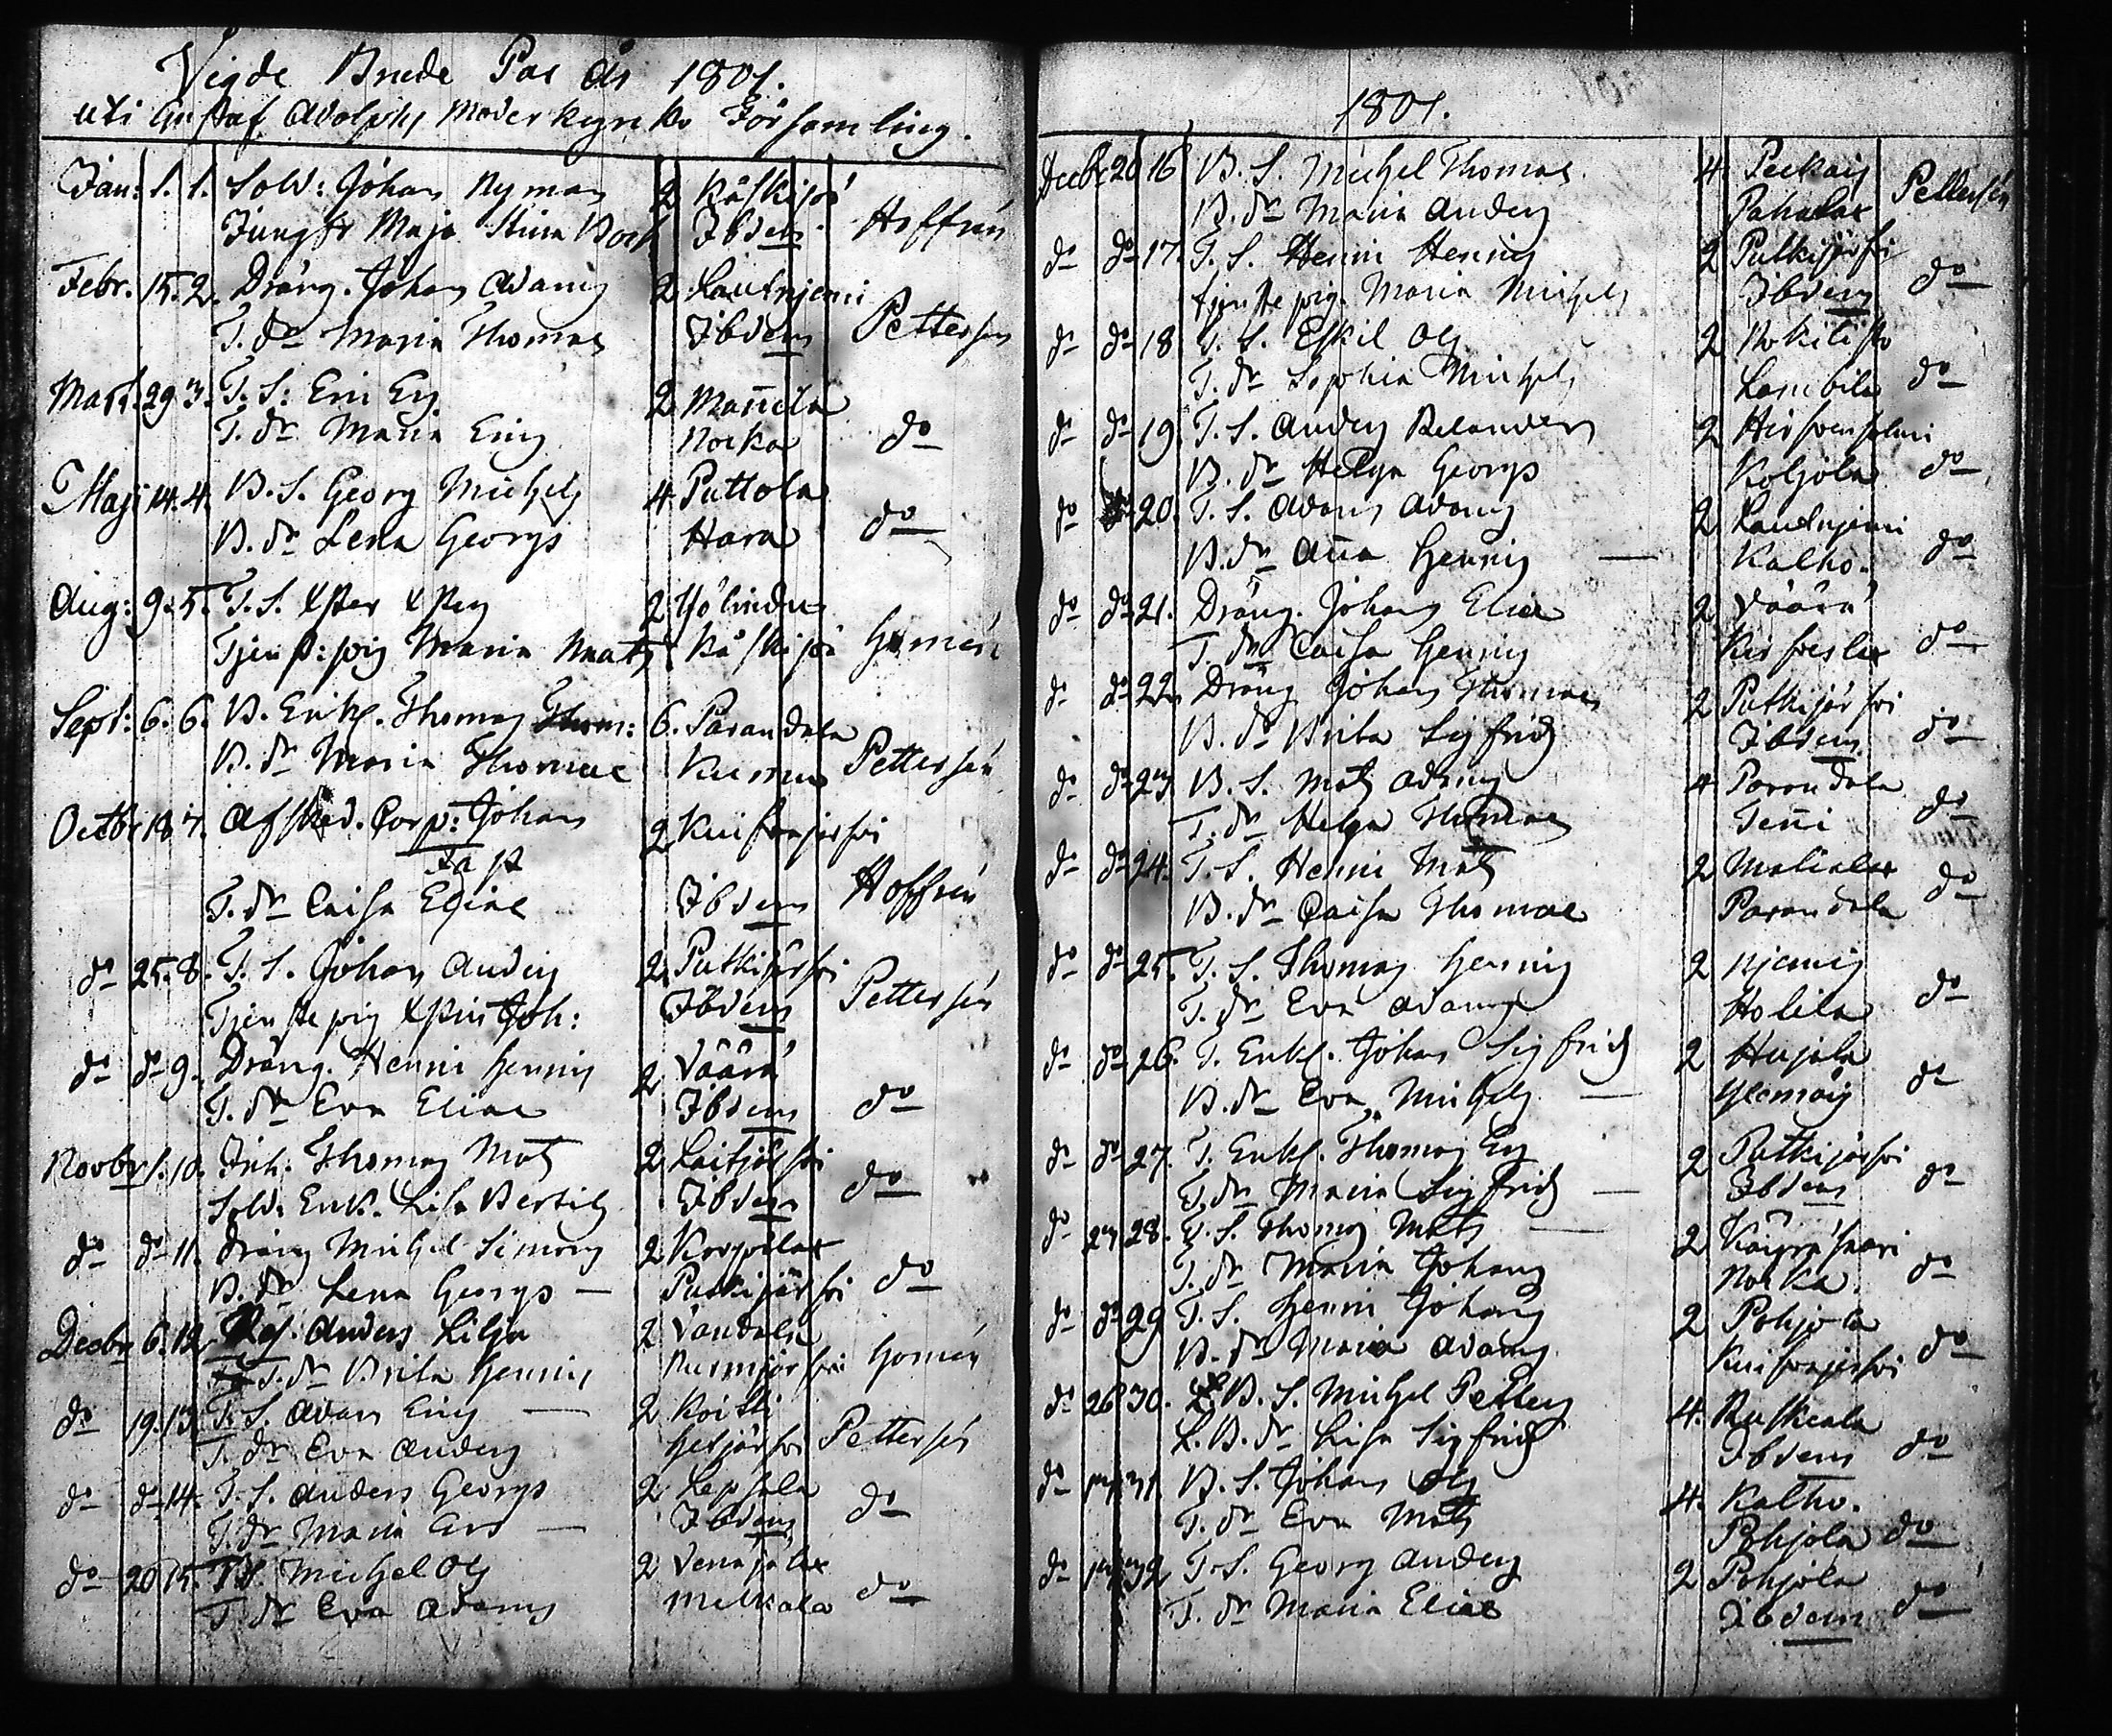 Vigde Brude Par år 1801.
uti Gustaf Adolphs Moderkyrko Församling.
Jan: 1. 1. Sold: Johan Nyman 2 Koskipä
Jungfr Maja Stina Ibdem Hoffrén
Febr. 15. 2. Dräng. Johan Adams 2 Lautnjemi
T. dr Maria Thomae Ibdem Pettersén
Mart. 29. 3. T. S: Eric Ers 2 Mañila
T. dr Maria Erics Nocka do
Maji 14. 4. B. S. Georg Michels 4 Puttola
B. dr Lena Georgs Hara do
Aug: 9. 5. T. S. Xster Xsters 2
Tjenst: pig Maria Mats Gomén
Sept: 6. 6. B. Enkl. Thomas Thom: 6. Parandala
B. dr Maria Thomae Kurru Pettersén
Octbr 18 7. Afsked. Corp: Johan 2 Kuifvajerfvi
Fast
T. dr Caisa Eliae Ibdem Hoffrén
do 25. 8. T. S. Johan Anders 2 Putkijärfvi
Tjenste pig Xstin Joh: Ibdem Pettersén
do do 9. Dräng. Henric Henrics 2 Väärä
T. dr Eva Eliae Ibdem do
Novbr 1. 10. Inh: Thomas Mats 2 Laitjärfvi
Sold: Enk. Lisa Bertils Ibdem do
do do 11. dräng Michel Simons 2
B. dr Lena Georgs — Putkijärfvi do
Decbr 6. 12. Anders Lilja 2 Vandala
T. dr Brita Henrics Gomén
do 19. 13. T. S. Adam Erics — 2 Koitti
T. dr Eva Anders Hetjärfvi Pettersén
do do 14. T. S. Anders Georgs 2 Lepsala
T. dr Maria Ers — Ibdem do
do 20 15. T. S. Michel Ols 2
T. dr Eva Adams Melkala do
1801.
Decbr 20 16 B. S. Michel Thomae 4 Pettersén
B. dr Maria Anders Pahala
do do 17. T. S. Henric Henrics 2 Putkijärfvi
tjenste pig. Maria Michels Ibdem do
do do 18 T. S. Eskil Ols 2
T. dr Sophia Michels Lambila do
do do 19. T. S. Anders 2 Hirfvensalmi
B. dr Helga Georgs Koljola do
do do 20. T. S. Adam Adams 2 Lautnjemi
B. dr Aña Henrics — Kalho. do
do do 21. Dräng. Johan Eliae 2 Väärä
T. dr Caisa Henrics do
do do 22. Dräng Johan Thomae 2 Putkijärfvi
B. dr Brita Sigfrids Ibdem do
do do 23 B. S. Mats Adams 4 Parandala
T. dr Helga Thomae Teñi do
do do 24. T. S. Henric Mats 2
B. dr Caisa Thomae Parandala do
do do 25. T. S. Thomas Henrics 2
T. dr Eva Adams Holila do
do do 26. T. Enkl. Johan Sigfrids 2 Hujala
B. dr Eva Michels — do
do do 27. T. Enkl. Thomas Ers 2 Putkijärfvi
T. dr Maria Sigfrids — Ibdem do
do 27 28. T. S. Thomas Mats — 2
T. dr Maria Johans Nocka. do
do do 29 T. S. Henric Johans 2 Pohjola
B. dr Maria Adams Kuifvajerfvi do
do 26 30. B. S. Michel Petters 4. Ruskeala
L. B. dr Lisa Sigfrids Ibdem do
do 31 B. S. Johan Ols 4. Kalho.
T. dr Eva Mats Pohjola do
do 32 T. S. Georg Anders 2 Pohjola
T. dr Maria Eliae Ibdem do